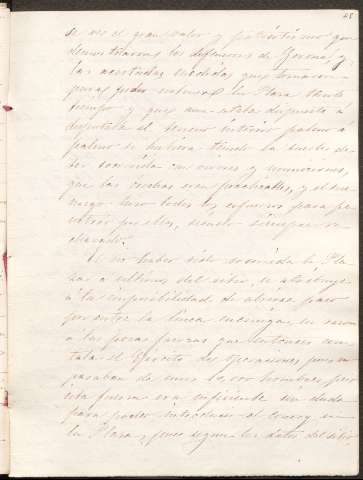 se ve el gran valor y patriotismo que
demostraron los defensores de Gerona, y
las acertadas medidas que tomaron
para poder sostener la Plaza tanto
tiempo y que aun estaba dispuesto á
disputarla el terreno interior palmo á
palmo si hubiera tenido la suerte de
ser socorrida con víveres y municiones,
que las brechas eran practicables, y el ene-
migo hizo todos los esfuerzos para pe-
netrar por ellas, siendo siempre re-
chazado.
El no haber sido socorrida la Pla-
za á últimos del sitio, se atribuye
á la imposibilidad de abrirse paso
por entre la línea enemiga, en razon
a las pocas fuerzas que entonces con-
taba el Ejército de Operaciones pues no
pasaban de hombres pero
esta fuerza era suficiente sin duda
para poder introducir el convoy en
la Plaza, pues segun los datos del sitio